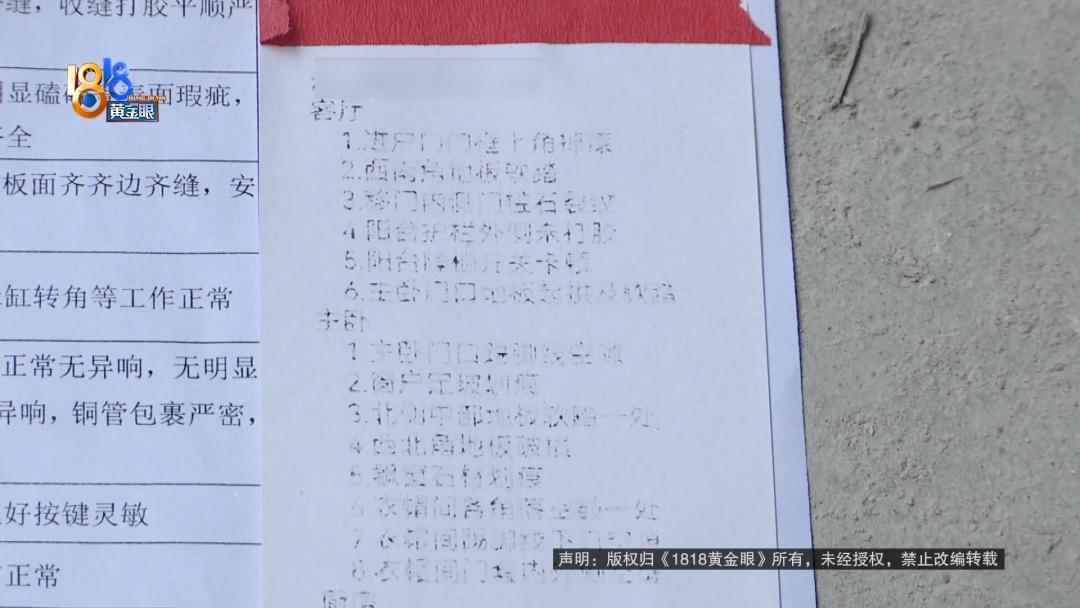 收缝打胶平顺严
1818
黄金眼
HUANG JIN YAN
显磕
面瑕疵，
全
板面齐齐边齐缝，安
缸转角等工作正常
正常无异响，无明显
异响，铜管包裹严密，
好按键灵敏
正常
客厅
1.进户门门框上角掉漆
2.西南角地板软踏
3.移门内侧门槛石裂纹
4.阳台护栏外侧未打胶
5.阳台
6.主卧门口地板起拱及软踏
主卧
1.主卧门口踢脚线空
2.窗户定玻划痕
3.北侧中部地板软踏一处
4.西北角地板破损
5.飘窗石材划痕
6.衣帽间 一处
7.衣帽间踢脚线下
8.衣帽间门套内外侧
声明：版权归《1818黄金眼》所有，未经授权，禁止改编转载